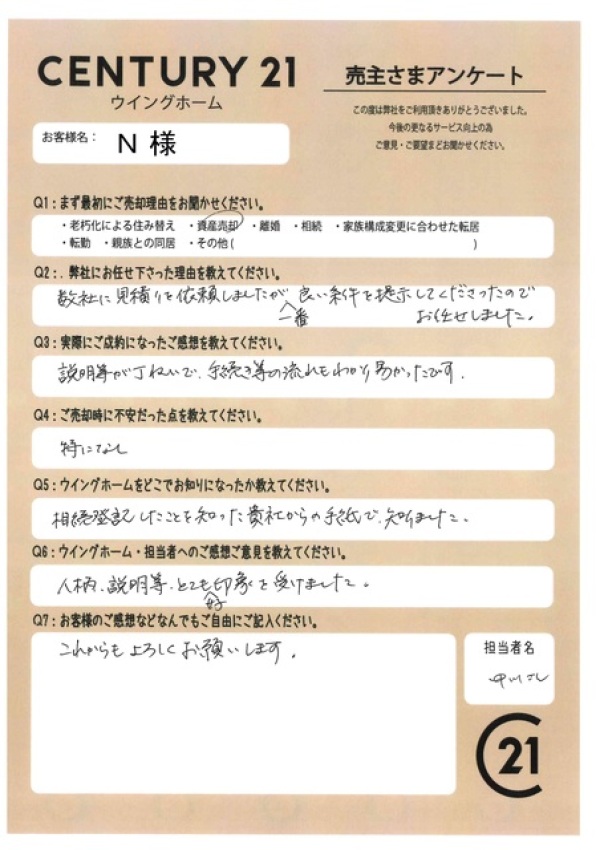 CENTURY 21
ウイングホーム
売主さまアンケート
この度は弊社をご利用頂きありがとうございました。
今後の更なるサービス向上の為
ご意見・ご要望までお聞かせください。
お客様名： N 様
Q1：まず最初にご売却理由をお聞かせください。
・老朽化による住み替え ・資産売却 ・離婚 ・相続 ・家族構成変更に合わせた転居
・転勤 ・親族との同居 ・その他( )
Q2：. 弊社にお任せ下さった理由を教えてください。
数社に見積りを依頼しましたが 一番 良い条件を提示してくださったので
お任せしました。
Q3：実際にご成約になったご感想を教えてください。
説明等が丁ねいで、手続き等の流れもわかり易かったです.
Q4：ご売却時に不安だった点を教えてください。
特になし
Q5：ウイングホームをどこでお知りになったか教えてください。
相続登記したことを知った貴社からの手紙で、知りました。
Q6：ウイングホーム・担当者へのご感想ご意見を教えてください。
人柄、説明等、とても好印象を受けました。
Q7：お客様のご感想などなんでもご自由にご記入ください。
これからもよろしくお願いします.
担当者名
21